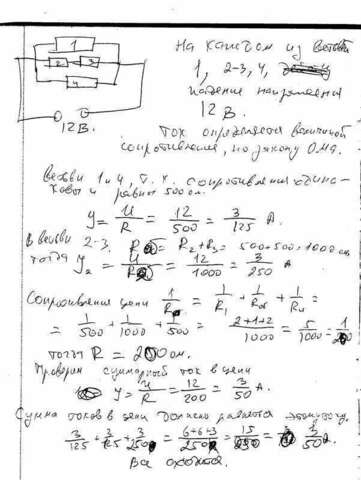 1
2 3
4
12 В.
На каждом из ветвей
1, 2-3, 4,
падение напряжения
12 В.
Ток определяется величиной
сопротивления, по закону Ома.
Ветви 1 и 4, т. к. сопротивления одинако-
ковы и равны 500 ом.
У = U/R = 12/500 = 3/125 А.
В ветви 2-3. R = R2+R3 = 500+500 = 1000 ом
тогда У2 = U/R = 12/1000 = 3/250 А
Сопротивления цепи 1/R = 1/R1 + 1/R2 + 1/R4 =
= 1/500 + 1/1000 + 1/500 = 2+1+2/1000 = 5/1000 = 1/200
тогда R = 200 ом.
Проверим суммарный ток в цепи
У = U/R = 12/200 = 3/50 А.
Сумма токов в цепи должно равятся этому току.
3/125 + 3/125 + 3/250 = 6+6+3/250 = 15/250 = 3/50
Все сходится.